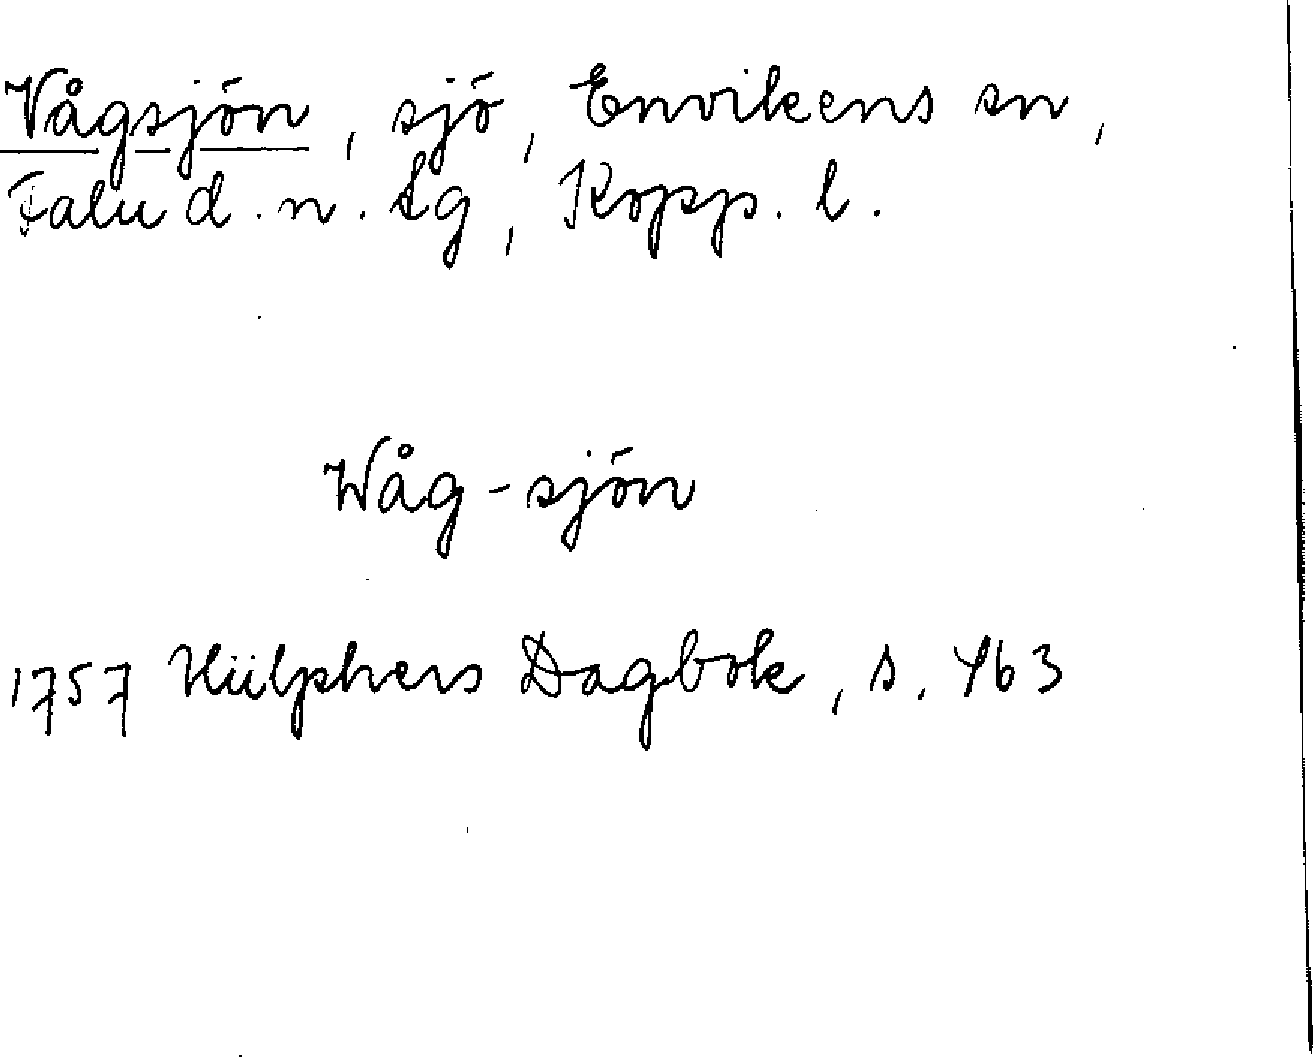 Vågsjön, sjö, Envikens sn,
Falu d. n. tg, Kopp. l.
Wåg-sjön
1757 Hülphers Dagbok, s. 463